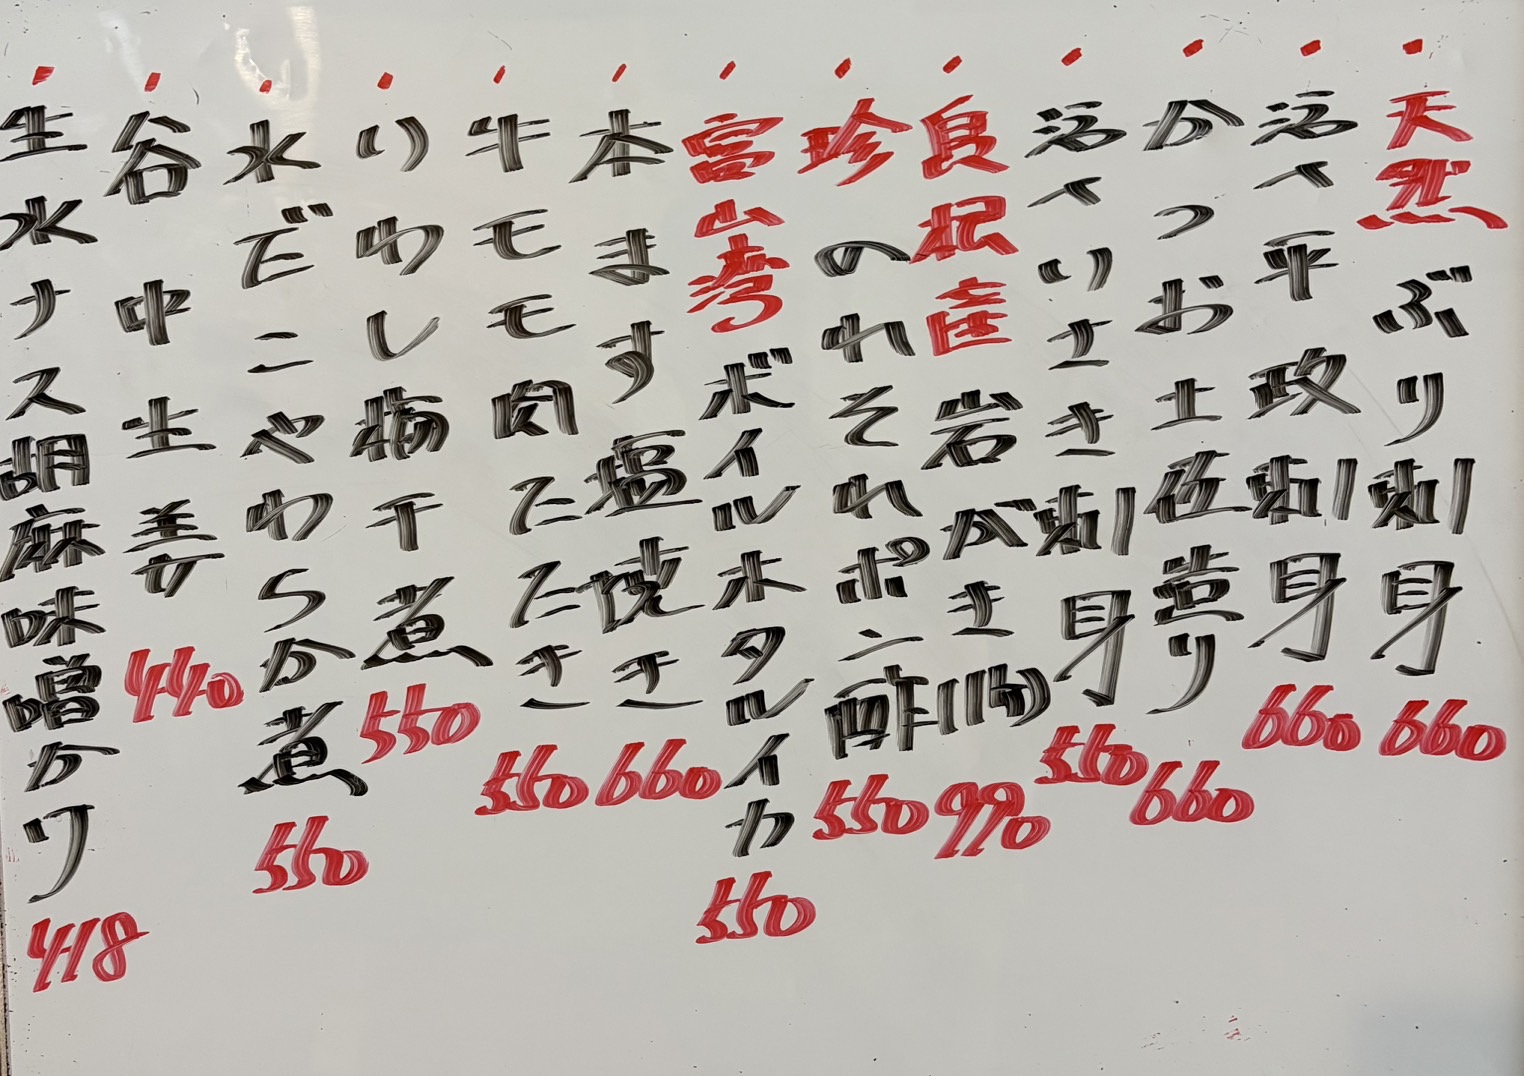 ・天然ぶり刺身 660
・活〆平政刺身 660
・かつお土佐造り 660
・活〆いさき刺身 550
・良根産岩がき(1個) 990
・珍のれそれポン酢 550
・富山湾ボイルホタルイカ 550
・本ます塩焼き 660
・牛モモ肉たたき 550
・いわし梅干煮 550
・水だこやわらか煮 550
・谷中生姜 440
・生水ナス胡麻味噌かけ 418